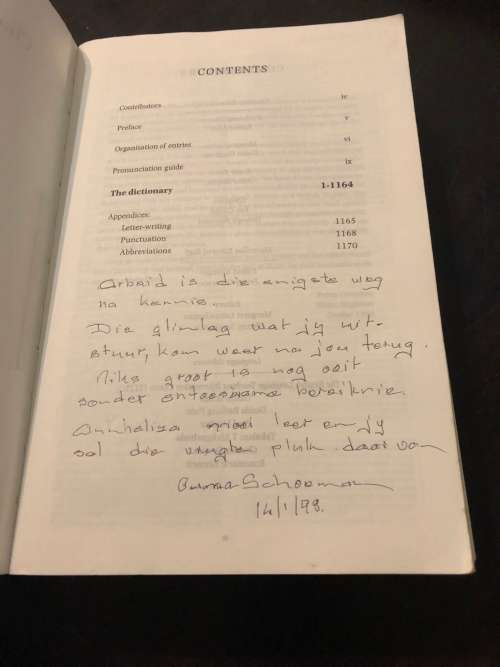 CONTENTS
Contributors iv
Preface v
Organisation of entries vi
Pronunciation guide ix
The dictionary 1-1164
Appendices:
Letter-writing 1165
Punctuation 1168
Abbreviations 1170
Arbeid is die enigste weg
na kennis.
Die glimlag wat jy uit-
stuur, kom weer na jou terug.
Niks groot is nog ooit
sonder entoesiasme bereik nie.
leer en jy
sal die vrugte pluk daar van
Schoeman
14/1/98.